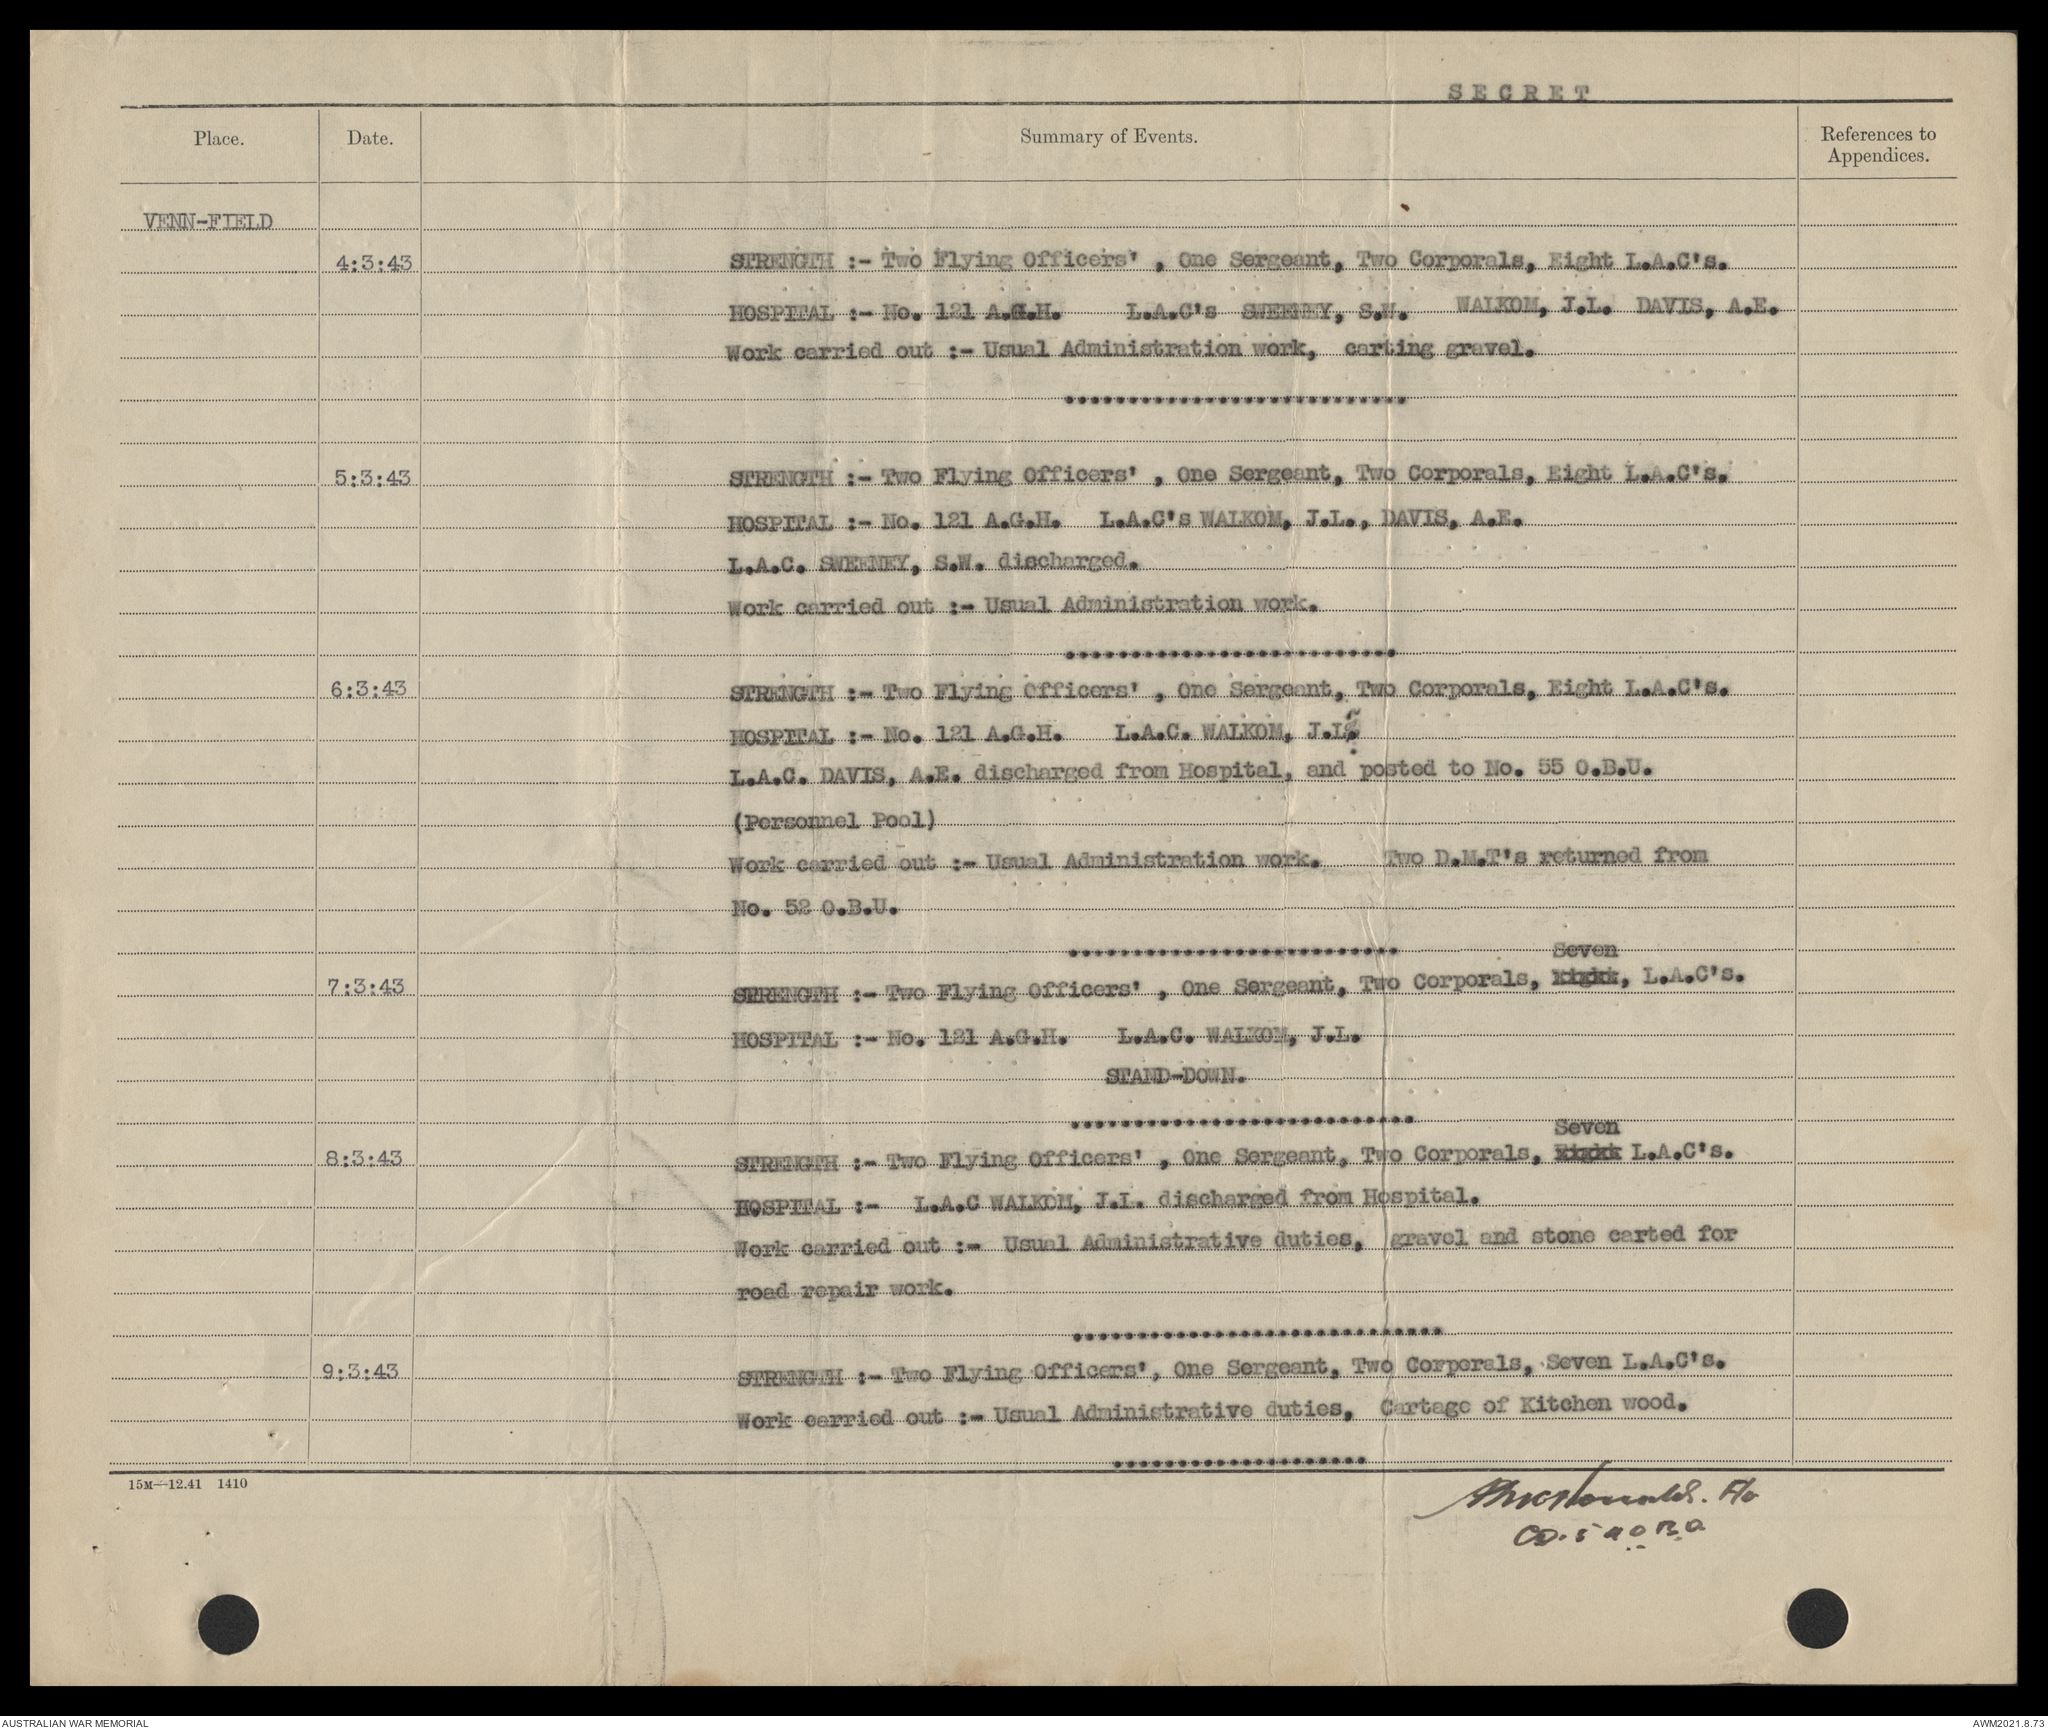 SECRET
Place. Date. Summary of Events. References to Appendices.
VENN-FIELD
4:3:43 STRENGTH :- Two Flying Officers' , One Sergeant, Two Corporals, Eight L.A.C's.
HOSPITAL :- No. 121 A.G.H. L.A.C's SWEENEY, S.W. WALKOM, J.L. DAVIS, A.E.
Work carried out :- Usual Administration work, carting gravel.
...........................
5:3:43 STRENGTH :- Two Flying Officers' , One Sergeant, Two Corporals, Eight L.A.C's.
HOSPITAL :- No. 121 A.G.H. L.A.C's WALKOM, J.L., DAVIS, A.E.
L.A.C. SWEENEY, S.W. discharged.
Work carried out :- Usual Administration work.
..........................
6:3:43 STRENGTH :- Two Flying Officers' , One Sergeant, Two Corporals, Eight L.A.C's.
HOSPITAL :- No. 121 A.G.H. L.A.C. WALKOM, J.L.
L.A.C. DAVIS, A.E. discharged from Hospital, and posted to No. 55 O.B.U.
(Personnel Pool)
Work carried out :- Usual Administration work. Two D.M.T's returned from
No. 52 O.B.U.
..........................
Seven
7:3:43 STRENGTH :- Two Flying Officers' , One Sergeant, Two Corporals, Eight, L.A.C's.
HOSPITAL :- No. 121 A.G.H. L.A.C. WALKOM, J.L.
STAND-DOWN.
...........................
Seven
8:3:43 STRENGTH :- Two Flying Officers' , One Sergeant, Two Corporals, Eight L.A.C's.
HOSPITAL :- L.A.C WALKOM, J.L. discharged from Hospital.
Work carried out :- Usual Administrative duties, gravel and stone carted for
road repair work.
.............................
9:3:43 STRENGTH :- Two Flying Officers', One Sergeant, Two Corporals, Seven L.A.C's.
Work carried out :- Usual Administrative duties, Cartage of Kitchen wood.
....................
15M—12.41 1410
McDonald. F/O
CO.
AUSTRALIAN WAR MEMORIAL
AWM2021.8.73